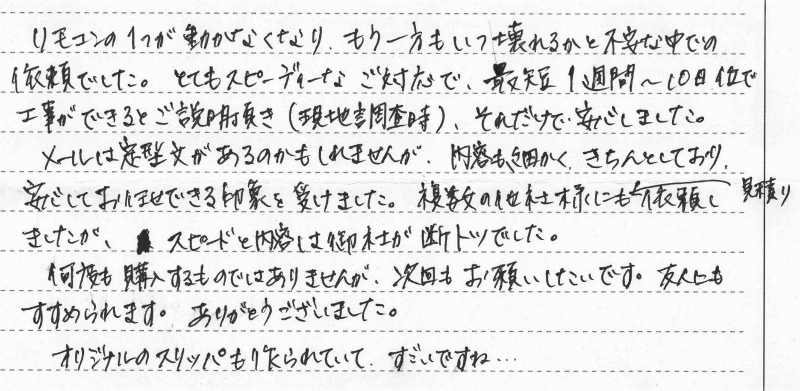 リモコンの1つが動かなくなり、もう一方もいつ壊れるかと不安な中での
依頼でした。とてもスピーディーなご対応で、最短1週間〜10日位で
工事ができるとご説明頂き(現地調査時)、それだけで安心しました。
メールは定型文があるのかもしれませんが、内容も細かく、きちんとしており、
安心してお任せできる印象を受けました。複数の他社様にも見積り依頼し
ましたが、スピードと内容は御社が断トツでした。
何度も購入するものではありませんが、次回もお願いしたいです。友人にも
すすめられます。ありがとうございました。
オリジナルのスリッパも作られていて、すごいですね…